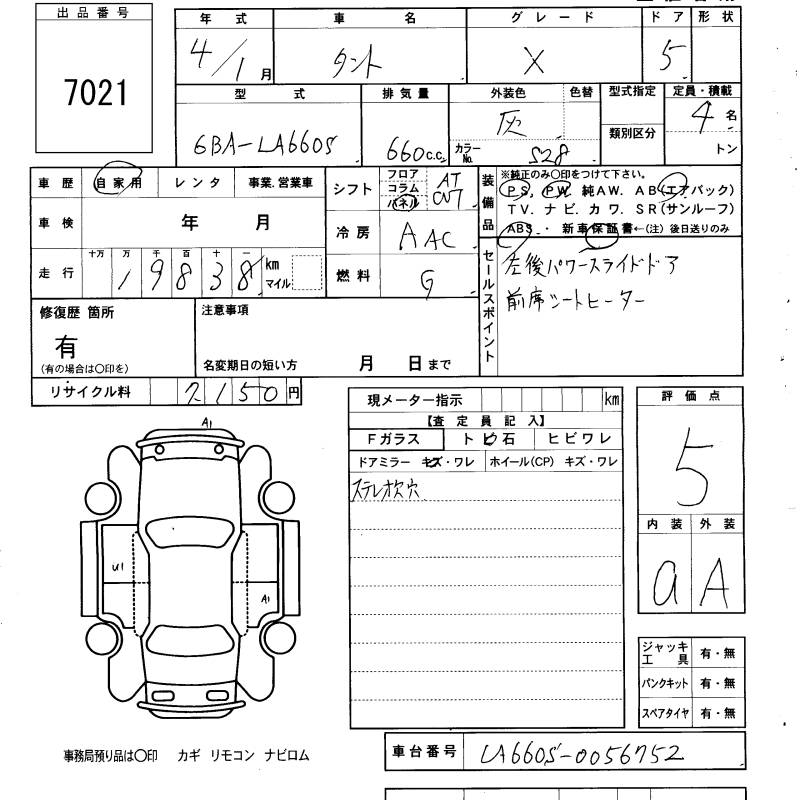 出品番号
7021
年式 車名 グレード ドア 形状
4/1月 タント X 5
型式 排気量 外装色 色替 型式指定 定員・積載
6BA-LA660S 660c.c. 灰 カラーNo. S28 類別区分 4名
トン
車歴 自家用 レンタ 事業.営業車
車検 年 月
走行 十万 万 千 百 十 一
19838 km
マイル
シフト フロア コラム パネル AT CVT
冷房 A AC
燃料 G
装備品 ※純正のみ〇印をつけて下さい。
PS, PW 純AW. AB(エアバック)
TV. ナビ. カワ. SR(サンルーフ)
ABS. ・ 新車保証書←(注)後日送りのみ
セールスポイント
左後パワースライドドア
前席シートヒーター
修復歴 箇所
有
(有の場合は〇印を)
注意事項
名変期日の短い方 月 日まで
リサイクル料 7150円
現メーター指示 km
【査定員記入】
Fガラス トビ石 ヒビワレ
ドアミラー キズ・ワレ ホイール(CP) キズ・ワレ
ステレオ欠穴
評価点
5
内装 外装
a A
A1
U1
A1
ジャッキ工具 有・無
パンクキット 有・無
スペアタイヤ 有・無
事務局預り品は〇印 カギ リモコン ナビロム
車台番号 LA660S-0056752